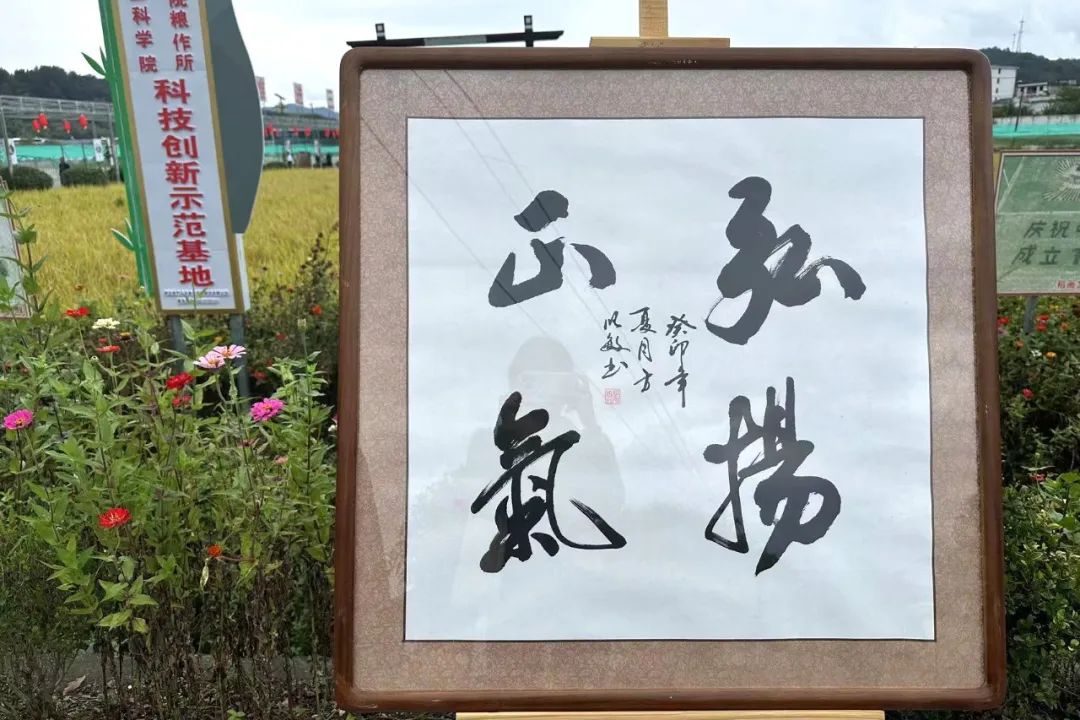 弘揚
正氣
癸卯年
夏月方
以敏书
院粮作所
科学院
科技创新示范基地
庆祝
成立